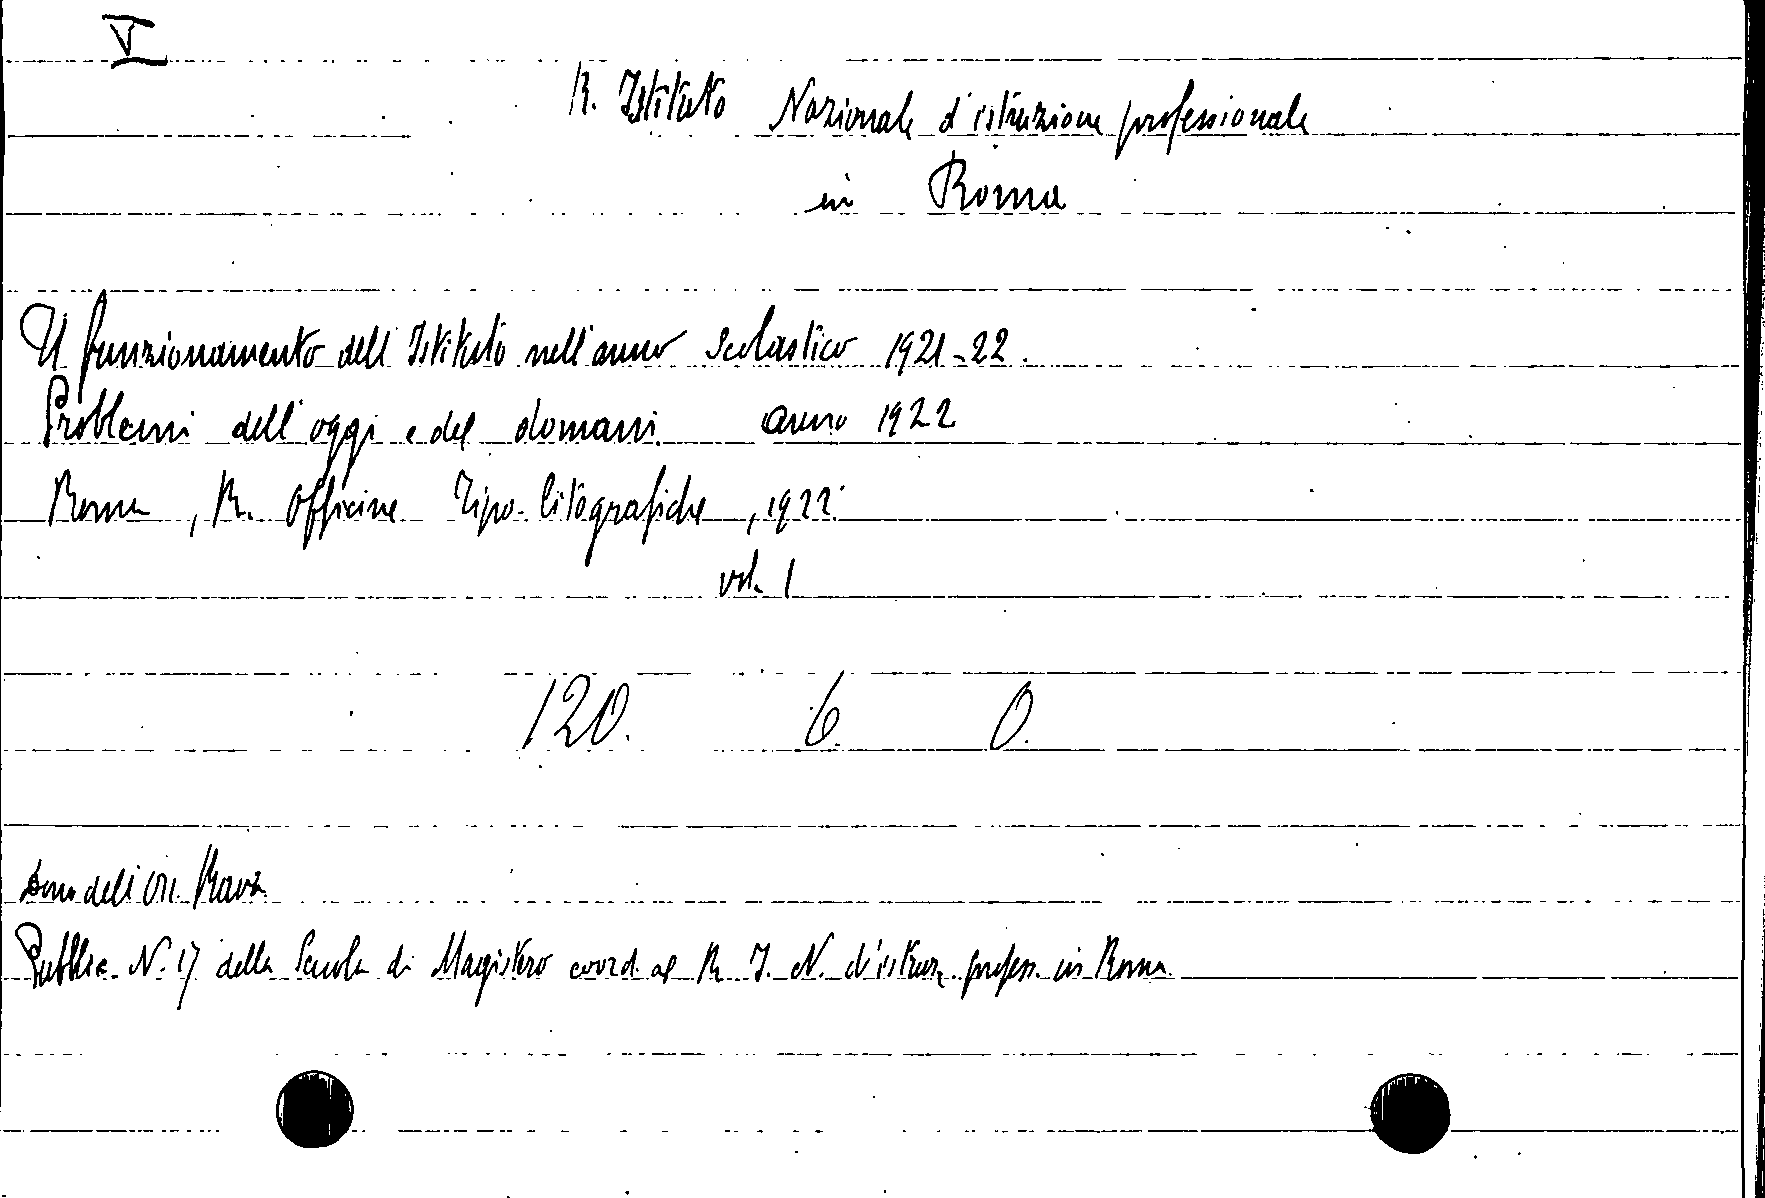 V
R. Istituto Nazionale d'istruzione professionale
in Roma
Il funzionamento dell'Istituto nell'anno scolastico 1921-22.
Problemi dell'oggi e del domani. anno 1922
Roma, R. Officine Tipo-litografiche, 1922.
vol. 1
120. 6. 0.
Dono dell'On. Rava
Pubblic. N. 17 della Scuola di Magistero coord. al R. I. N. d'istruz. profess. in Roma